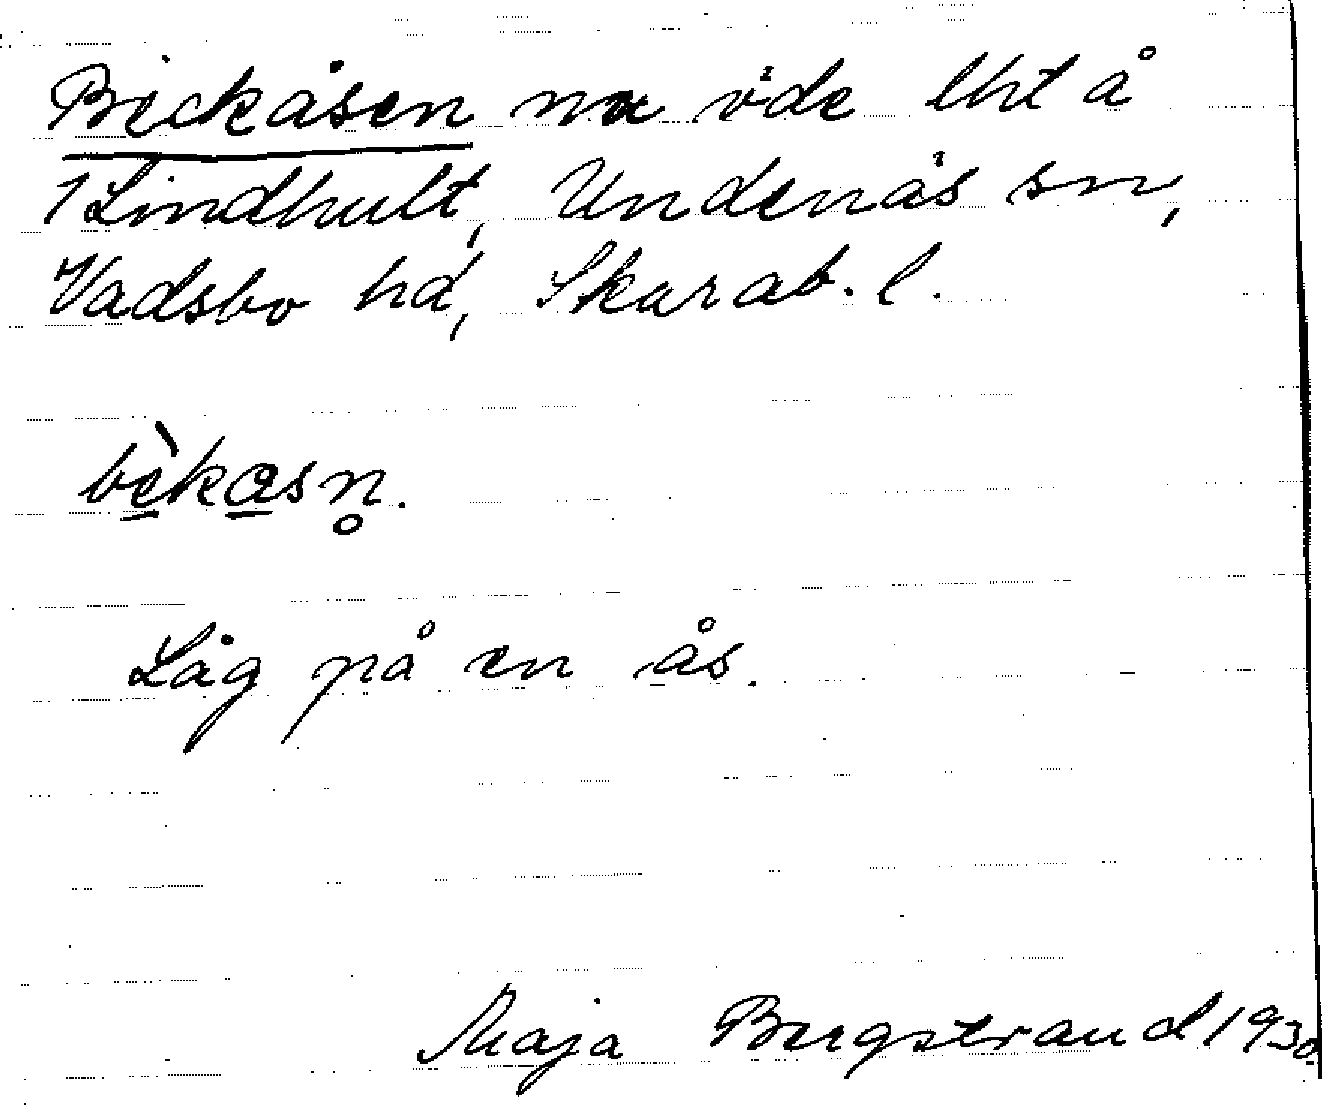 Bickåsen nu öde lht å
1 Lindhult, Undenäs sn,
Vadsbo hd, Skarab. l.
bèkasn̥.
Låg på en ås.
Maja Bergstrand 1930